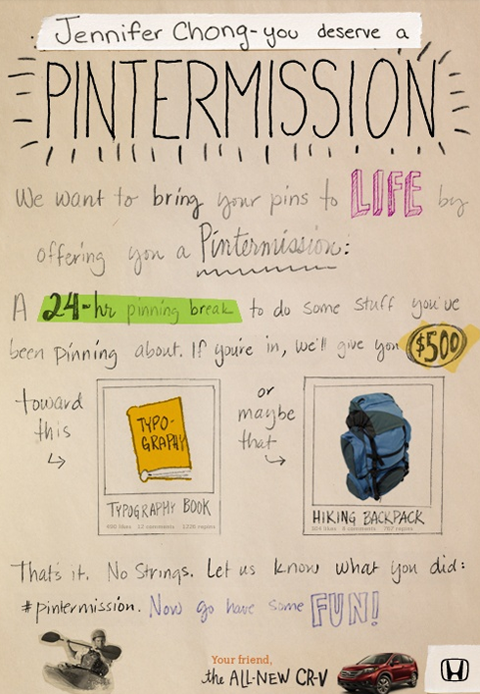 Jennifer Chong-you deserve a
PINTERMISSION
We want to bring your pins to LIFE by
offering you a Pintermission:
A 24-hr pinning break to do some stuff you've
been pinning about. If you're in, we'll give you $500
toward this
TYPO-
GRAPHY
TYPOGRAPHY BOOK
or maybe that
HIKING BACKPACK
That's it. No Strings. Let us know what you did:
#pintermission. Now go have some FUN!
Your friend,
the ALL-NEW CR-V